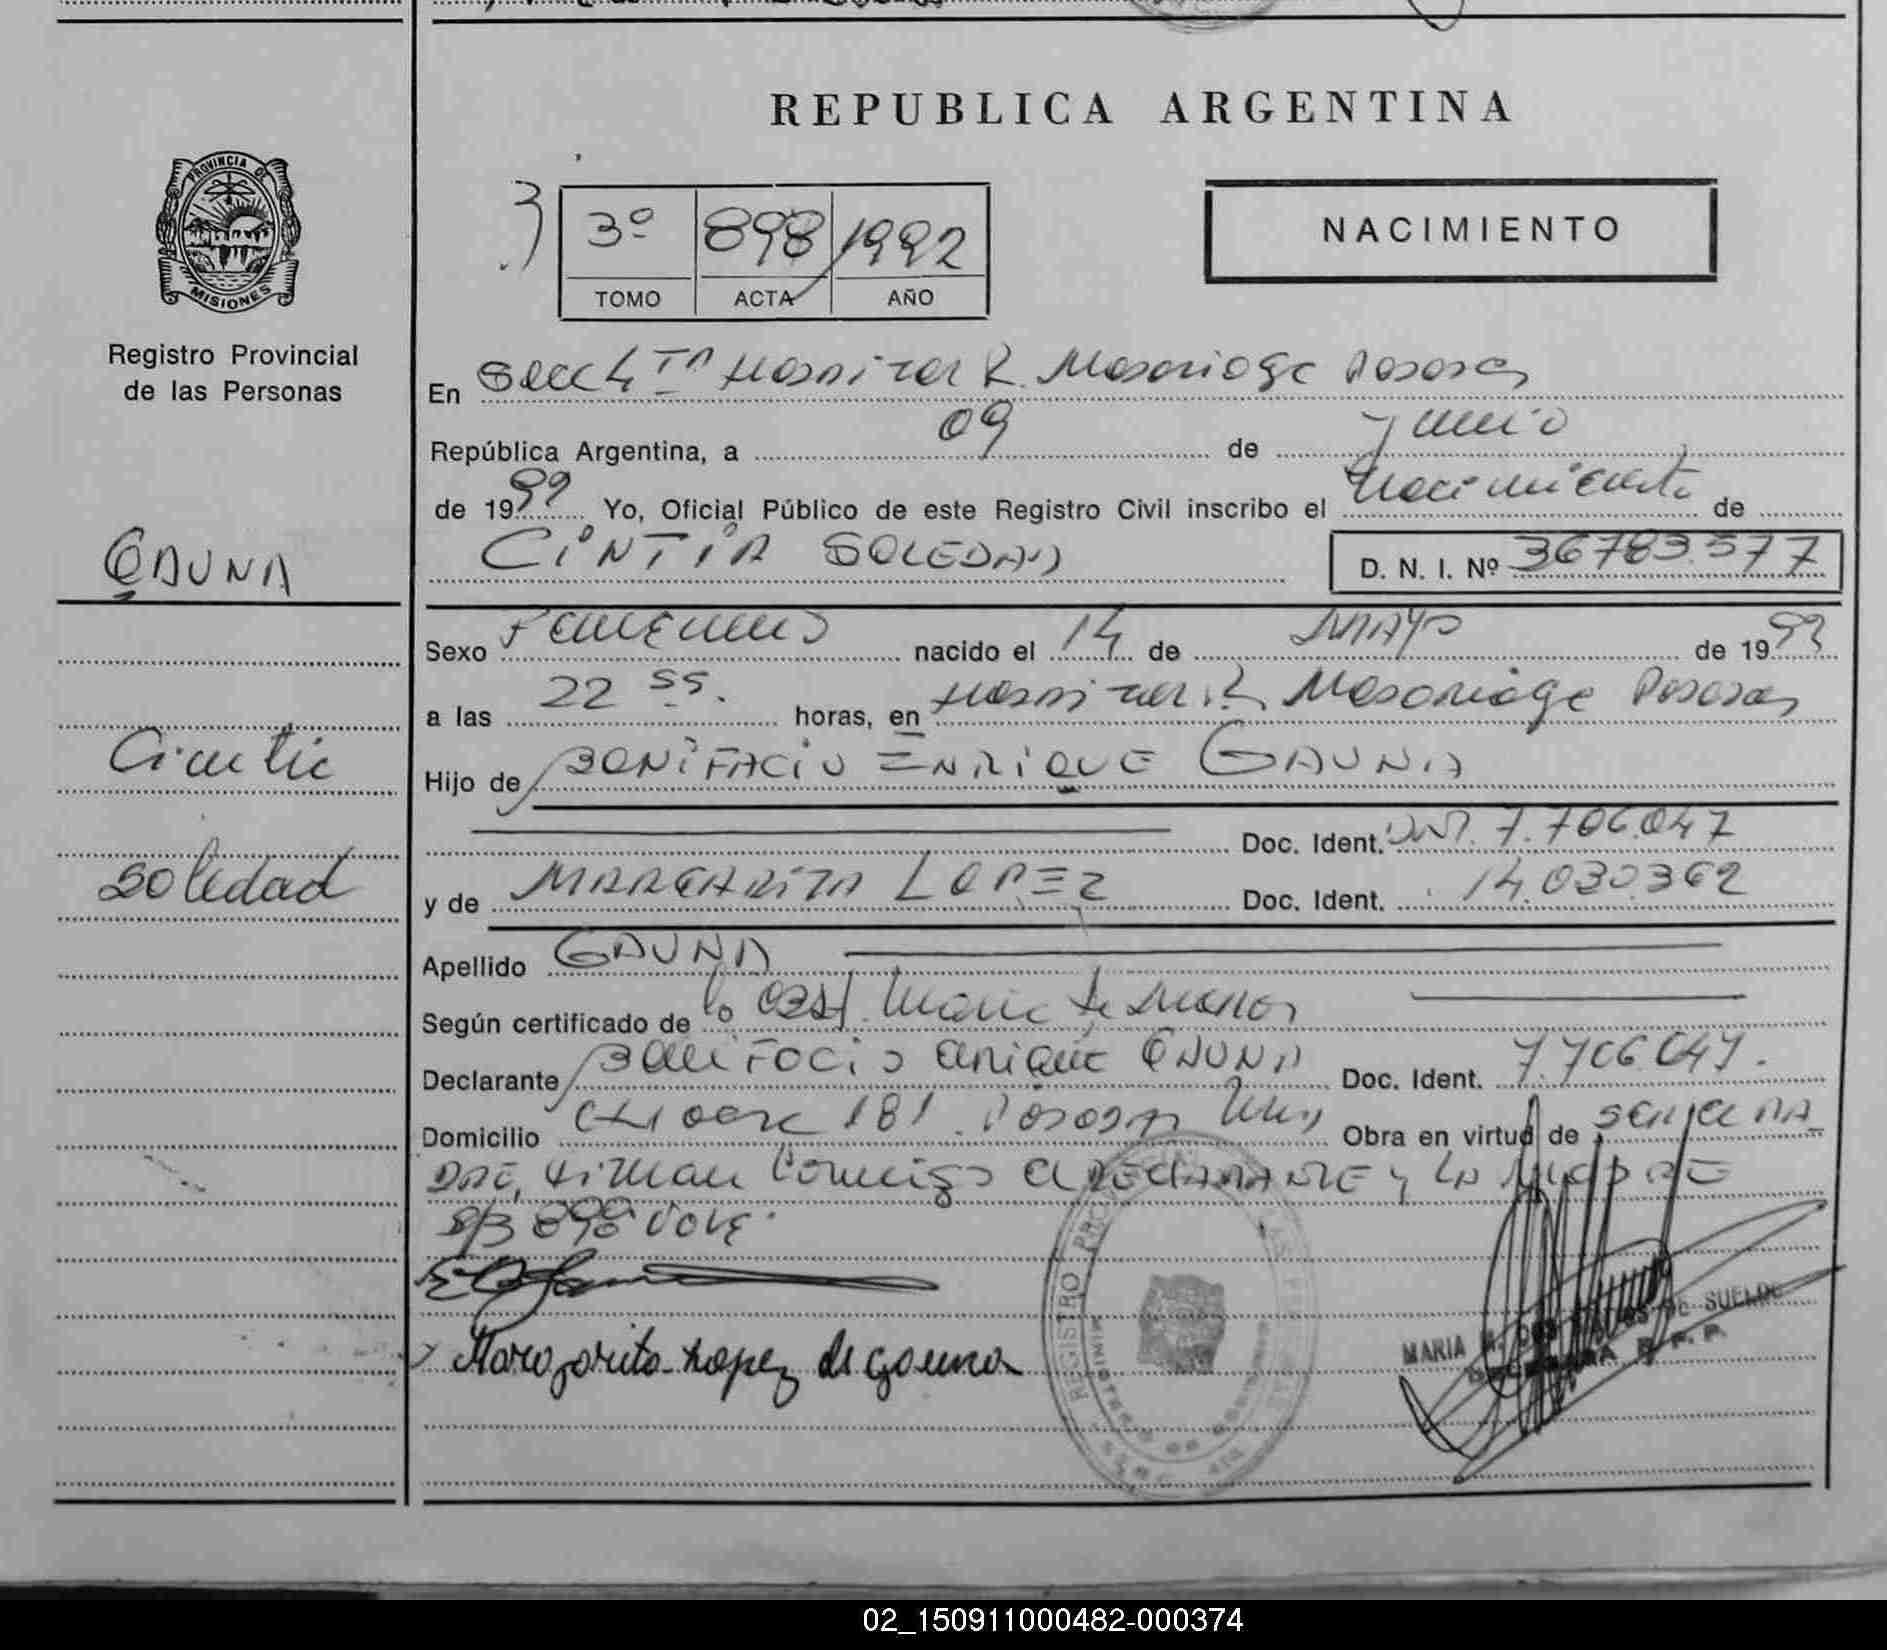 REPUBLICA ARGENTINA
PROVINCIA DE
MISIONES
Registro Provincial
de las Personas
3º 898 1992
TOMO ACTA AÑO
NACIMIENTO
En Secc 4 Hospital R. Posadas
República Argentina, a 09 de Junio
de 1992 Yo, Oficial Público de este Registro Civil inscribo el nacimiento de
GAUNA
CINTIA SOLEDAD D. N. I. Nº 36783.577
Sexo Femenino nacido el 14 de MAYO de 1992
a las 22 55. horas, en Hospital R. Posadas
Cintia
Hijo de BONIFACIO ENRIQUE GAUNA
Doc. Ident. DNI. 7.706.047
Soledad
y de MARGARITA LOPEZ Doc. Ident. 14.030.362
Apellido GAUNA
Según certificado de lo Obst. Maria
Declarante BONIFACIO Enrique GAUNA Doc. Ident. 7.706.047.
Domicilio 181. Posadas Obra en virtud de
DRE, Firman Conmigo el DECLARANTE y LA MADRE
S/B 898 VALE.
Margarita Lopez de gauna
REGISTRO
MARIA DE SUELDO
R. P. P.
02_150911000482-000374